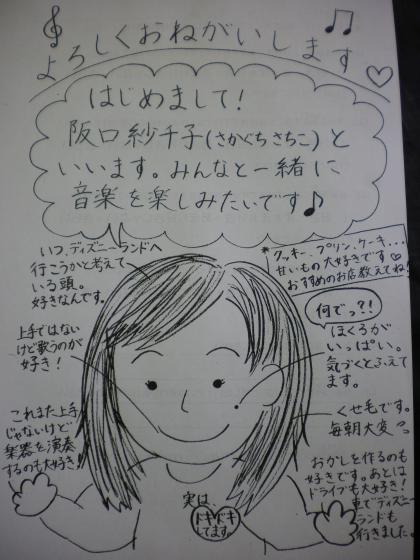 よろしくおねがいします
はじめまして!
阪口紗千子(さかぐちさちこ)と
いいます。みんなと一緒に
音楽を楽しみたいです♪
いつ、ディズニーランドへ
行こうかと考えて
いる頭。
好きなんです。
*クッキー、プリン、ケーキ...
甘いもの大好きです♡
おすすめのお店教えてね!
上手ではない
けど歌うのが
好き!
何でっ?!
ほくろが
いっぱい。
気づくとふえて
ます。
これまた上手
じゃないけど
楽器を演奏
するのも大好き!
くせ毛です。
毎朝大変
おかしを作るのも
好きです。あとは
ドライブも大好き!
車でディズニー
ランドも
行きました。
実は、
ドキドキ
してます。